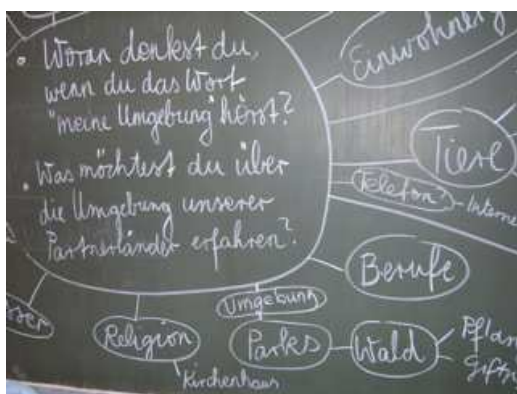 • Woran denkst du,
wenn du das Wort
"meine Umgebung" hörst?
• Was möchtest du über
die Umgebung unserer
Partnerländer erfahren?
Einwohner
Tiere
Telefon?
Berufe
Umgebung
Religion
Kirchenhaus
Parks
Wald